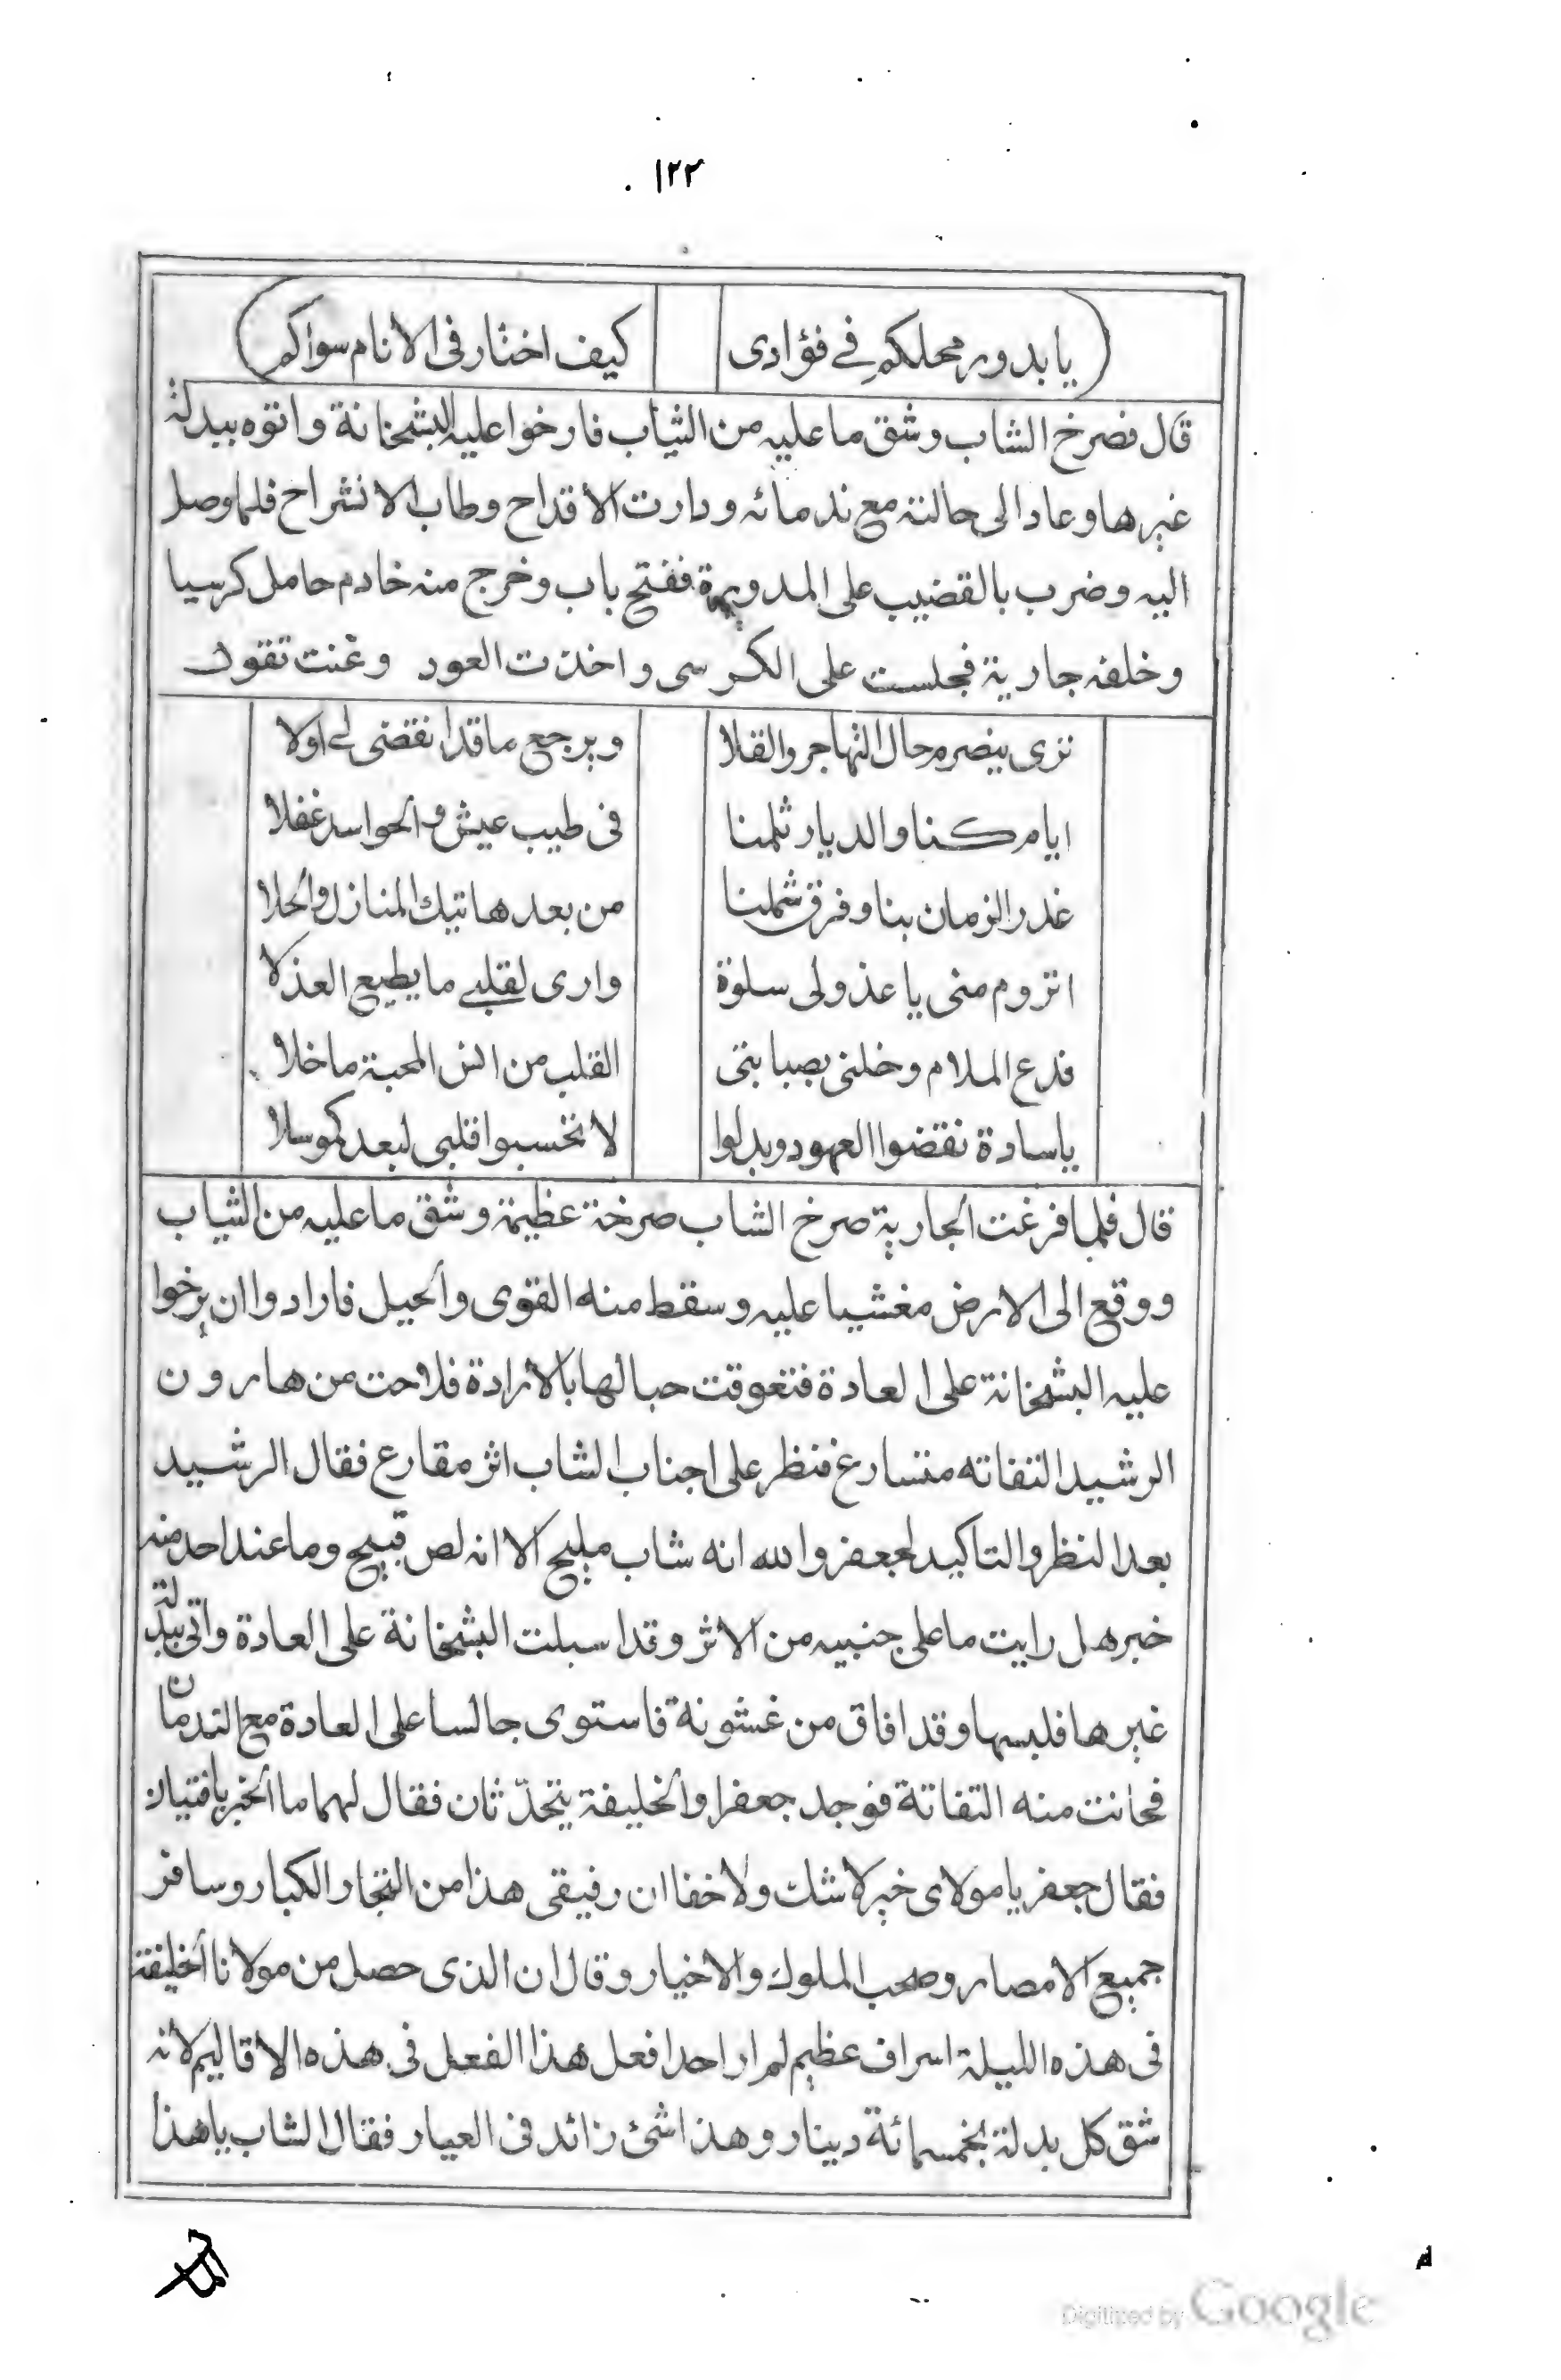 ١٢٢
يا بدور محلكم في فؤادى كيف اختار فى الانام سواكم
قال فصرخ الشاب وشق ما عليه من الثياب فارخوا عليه البشخانة واتوه ببدلة
غيرها وعاد الى حالته مع ندمائه ودارت الاقداح وطاب الانشراح فلما وصل
اليه وضرب بالقضيب على المدورة ففتح باب وخرج منه خادم حامل كرسيا
وخلفه جارية فجلست على الكرسى واخذت العود وغنت تقول
ترى ينصرم حال التهاجر والقلا ويرجع ما قد انقضى لى اولا
ايام كنا والديار تلمنا فى طيب عيش والحواسد غفلا
غدر الزمان بنا وفرق شملنا من بعد هاتيك المنازل والحلا
اتروم منى يا عذولى سلوة وارى لقلبي ما يطيع العذلا
فدع الملام وخلنى بصبابتى القلب من انس المحبة ما خلا
يا سادة نقضوا العهود وبدلوا لا تحسبوا قلبى لبعدكمو سلا
قال فلما فرغت الجارية صرخ الشاب صرخة عظيمة وشق ما عليه من الثياب
ووقع الى الارض مغشيا عليه وسقط منه القوى والحيل فارادوا ان يرخوا
عليه البشخانة على العادة فتعوقت حبالها بالارادة فلاحت من هارون
الرشيد التفاته متسارع فنظر على اجناب الشاب اثر مقارع فقال الرشيد
بعد النظر والتاكيد لجعفر والله انه شاب مليح الا انه لص قبيح وما عند احد منه
خبر هل رايت ما على جنبيه من الاثر وقد اسبلت البشخانة على العادة واتى ببدلة
غيرها فلبسها وقد افاق من غشونة فاستوى جالسا على العادة مع الندمان
فحانت منه التفاتة فوجد جعفرا والخليفة يتحدّثان فقال لهما ما الخبر يا فتيان
فقال جعفر يا مولاى خير لا شك ولا خفا ان رفيقى هذا من التجار الكبار وسافر
جميع الامصار وصحب الملوك والاخيار وقال ان الذى حصل من مولانا الخليفة
فى هذه الليلة اسراف عظيم لم ار احدا فعل هذا الفعل فى هذه الاقاليم لانه
شق كل بدلة بخمسمائة دينار وهذا شئ زائد فى العيار فقال الشاب يا هذا
Digitized by Google